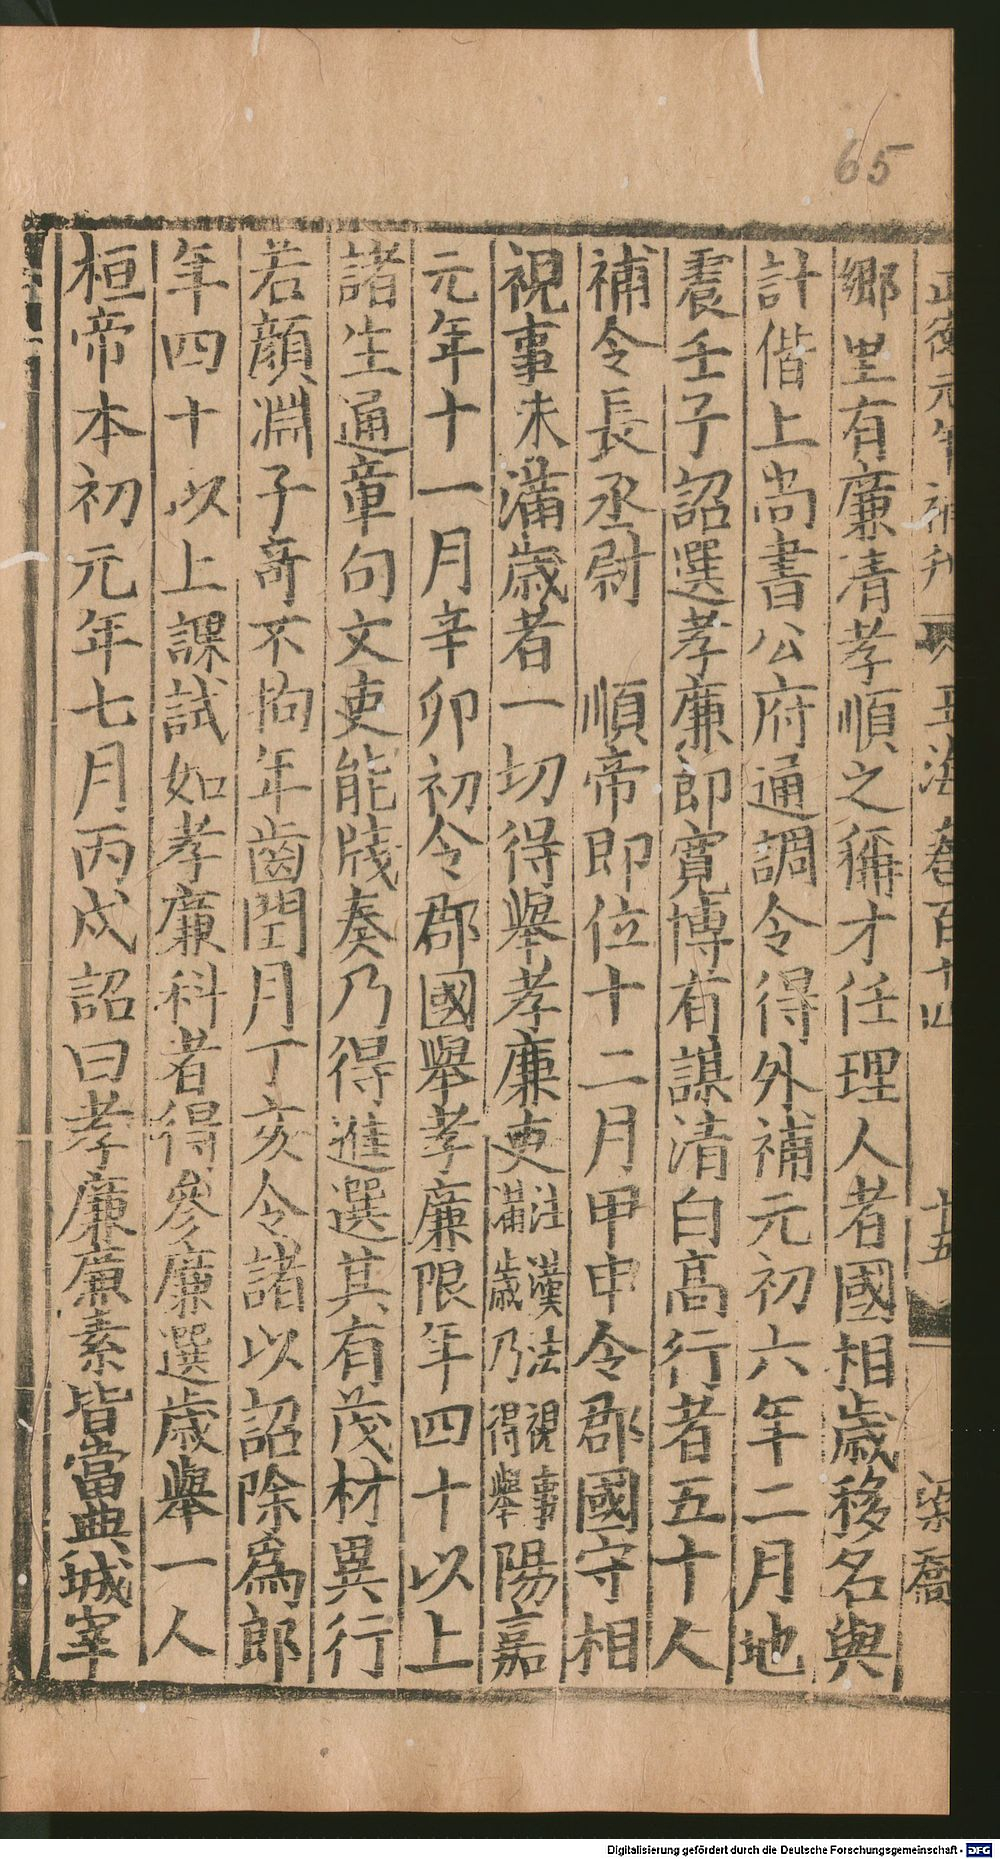 65
正德元年補刊 玉海卷百十四 十五 梁喬
鄉里有廉清孝順之稱才任理人者國相歲移名與
計偕上尚書公府通調令得外補元初六年二月地
震壬子詔選孝廉郎寬博有謀清白高行者五十人
補令長丞尉 順帝即位十二月甲申令郡國守相
視事未滿歲者一切得舉孝廉吏注漢法視事滿歲乃得舉陽嘉
元年十一月辛卯初令郡國舉孝廉限年四十以上
諸生通章句文吏能牋奏乃得進選其有茂材異行
若顏淵子奇不拘年齒閏月丁亥令諸以詔除為郎
年四十以上課試如孝廉科者得參廉選歲舉一人
桓帝本初元年七月丙戌詔曰孝廉廉素皆當典城宰
Digitalisierung gefördert durch die Deutsche Forschungsgemeinschaft - DFG